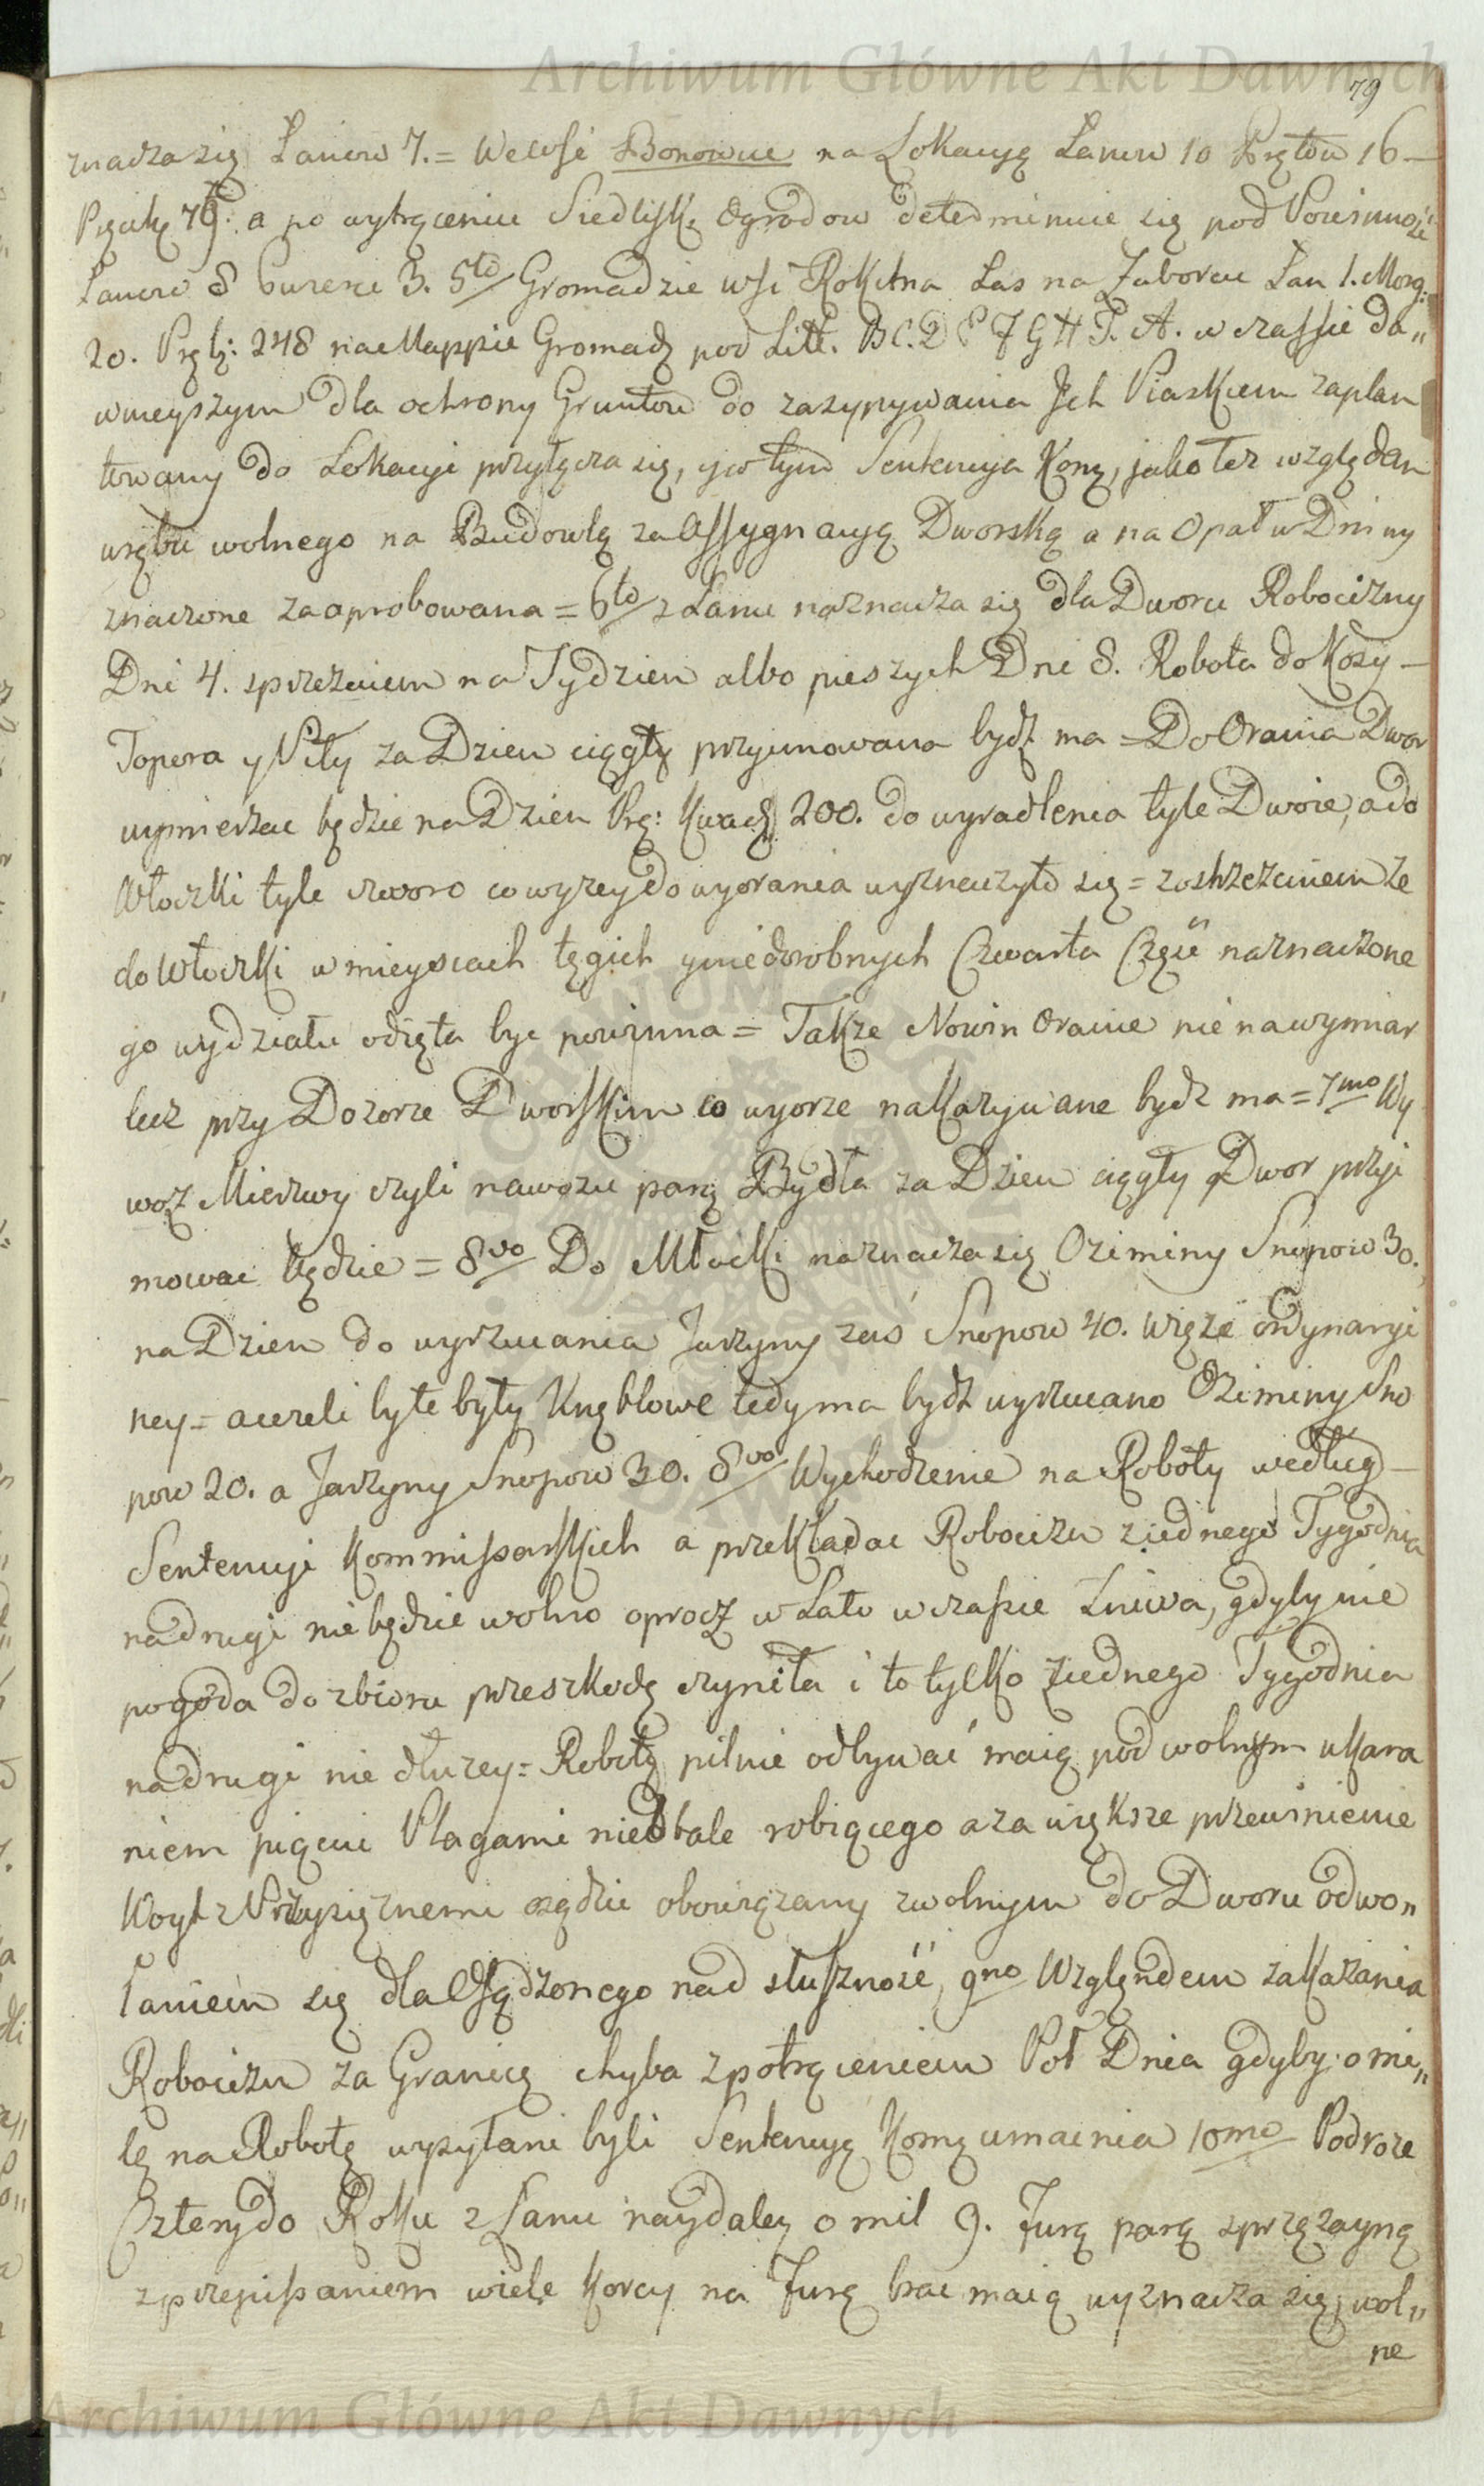 Archiwum Główne Akt Dawnych
79
znacza się Łanow 7. = We Wsi Bonowie na Lokacyę Łanow 10 Prętow 16 —
Pęcik 79: a po wytrąceniu Siedlisk, Ogrodow determinuie się pod Powinność
Łanow 8 3. 5to Gromadzie wsi Rokitna Las na Zaborcu Łan 1. Morg:
20. Pręt: 248 na Mappie Gromadz pod Litt. B C. D E F G H I. A. w czassie da„
wnieyszym dla ochrony Gruntow do zasypywania Jch Piaskiem zaplan
towany do Lokacyi przyłącza się, y w tym Sentencya Komą, jako też względem
wrębu wolnego na Budowlę za Assygnacyą Dworską a na Opał w Dni wy
znaczone zaaprobowana = 6to z Łanu naznacza się dla Dworu Robocizny
Dni 4. sprzężaiem na Tydzien albo pieszych Dni 8. Robota do Kosy —
Topora y Piły za Dzien ciągły przyimowana bydź ma = Do Orania Dwor
wymierzac będzie na Dzien Prę: Kwadr 200. do wyradlenia tyle Dwoie, a do
Włoczki tyle czworo co wyzey do wyorania wyznaczyło się = zostrzezeniem ze
do Włoczki w mieyscach tęgich y niedorobnych Czwarta Część naznaczone
go wydziału odięta byc powinna = Takze Nowin Oranie nie na wymiar
lecz przy Dozorze Dworskim co wyorze nakazywane bydź ma = 7mo Wy
woz Mierzwy czyli nawozu parą Bydła za Dzien ciągły Dwor przyi
mowac będzie = 8vo Do Młocki naznacza się Oziminy Snopow 30.
na Dzien do wyrzucania Jarzyny zaś Snopow 40. Więzi ordynaryi
ney = a iezeli byłe były Knęblowe tedy ma bydź wyrzucano Oziminy Sno
pow 20. a Jarzyny Snopow 30. 8vo Wychodzenie na Roboty według —
Sentencyi Kommissarskich a przekładac Robocizn z iednego Tygodnia
na drugi nie będzie wolno oprocz w Lato w czasie Żniwa, gdyby nie
pogoda do zbioru przeszkodę czyniła i to tylko z iednego Tygodnia
na drugi nie dłuzey = Robotę pilnie odbywać maią pod wolnym ukara
niem pięciu Plagami niedbale robiącego a za większe przewinienie
Woyt z Przysięznemi osądzic obowiązany z wolnym do Dworu odwo„
łaniem się dla Osądzonego nad słuszność, 9no Względem zakazania
Robocizn za Granicę chyba z potrąceniem Poł Dnia gdyby o mi„
lę na Robotę wysyłani byli Sentencyę Komą umacnia 10mo Podroze
Cztery do Roku z Łanu naydaley o mil 9. Furą parą sprzęzayną
z przepisaniem wiele Korcy na Furę brac maią wyznacza się, wol„
ne
Archiwum Główne Akt Dawnych